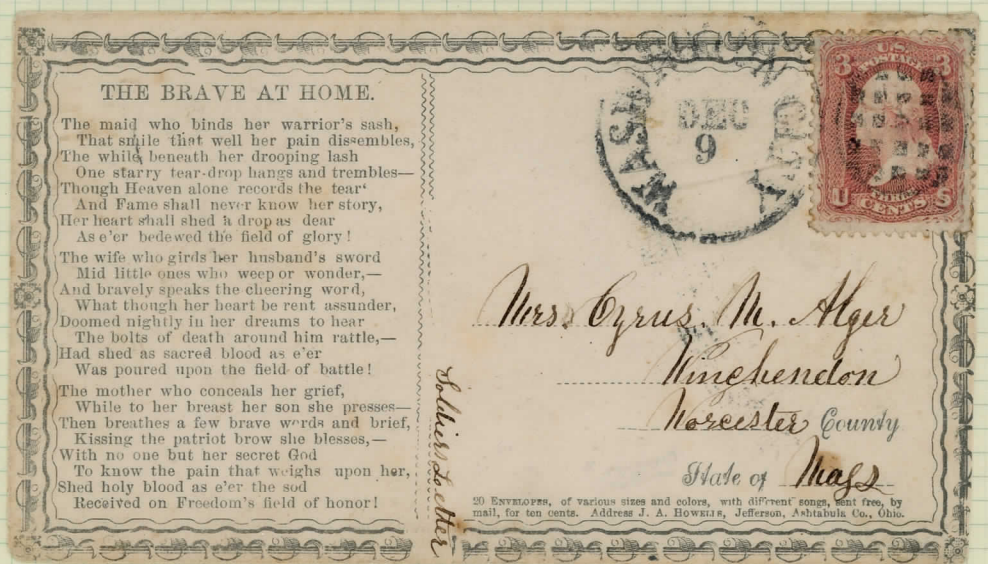 THE BRAVE AT HOME.
The maid who binds her warrior's sash,
That smile that well her pain dissembles,
The while beneath her drooping lash
One starry tear-drop hangs and trembles—
Though Heaven alone records the tear'
And Fame shall never know her story,
Her heart shall shed a drop as dear
As e'er bedewed the field of glory!
The wife who girds her husband's sword
Mid little ones who weep or wonder,—
And bravely speaks the cheering word,
What though her heart be rent assunder,
Doomed nightly in her dreams to hear
The bolts of death around him rattle,—
Had shed as sacred blood as e'er
Was poured upon the field of battle!
The mother who conceals her grief,
While to her breast her son she presses—
Then breathes a few brave words and brief,
Kissing the patriot brow she blesses,—
With no one but her secret God
To know the pain that weighs upon her,
Shed holy blood as e'er the sod
Received on Freedom's field of honor!
Soldiers Letter
WASHINGTON CITY
DEC
9
U.S.
POSTAGE
3 3
THREE
U CENTS S
Mrs. Cyrus M. Alger
Winchendon
Worcester County
State of Mass
20 ENVELOPES, of various sizes and colors, with different songs, sent free, by
mail, for ten cents. Address J. A. HOWELLS, Jefferson, Ashtabula Co., Ohio.